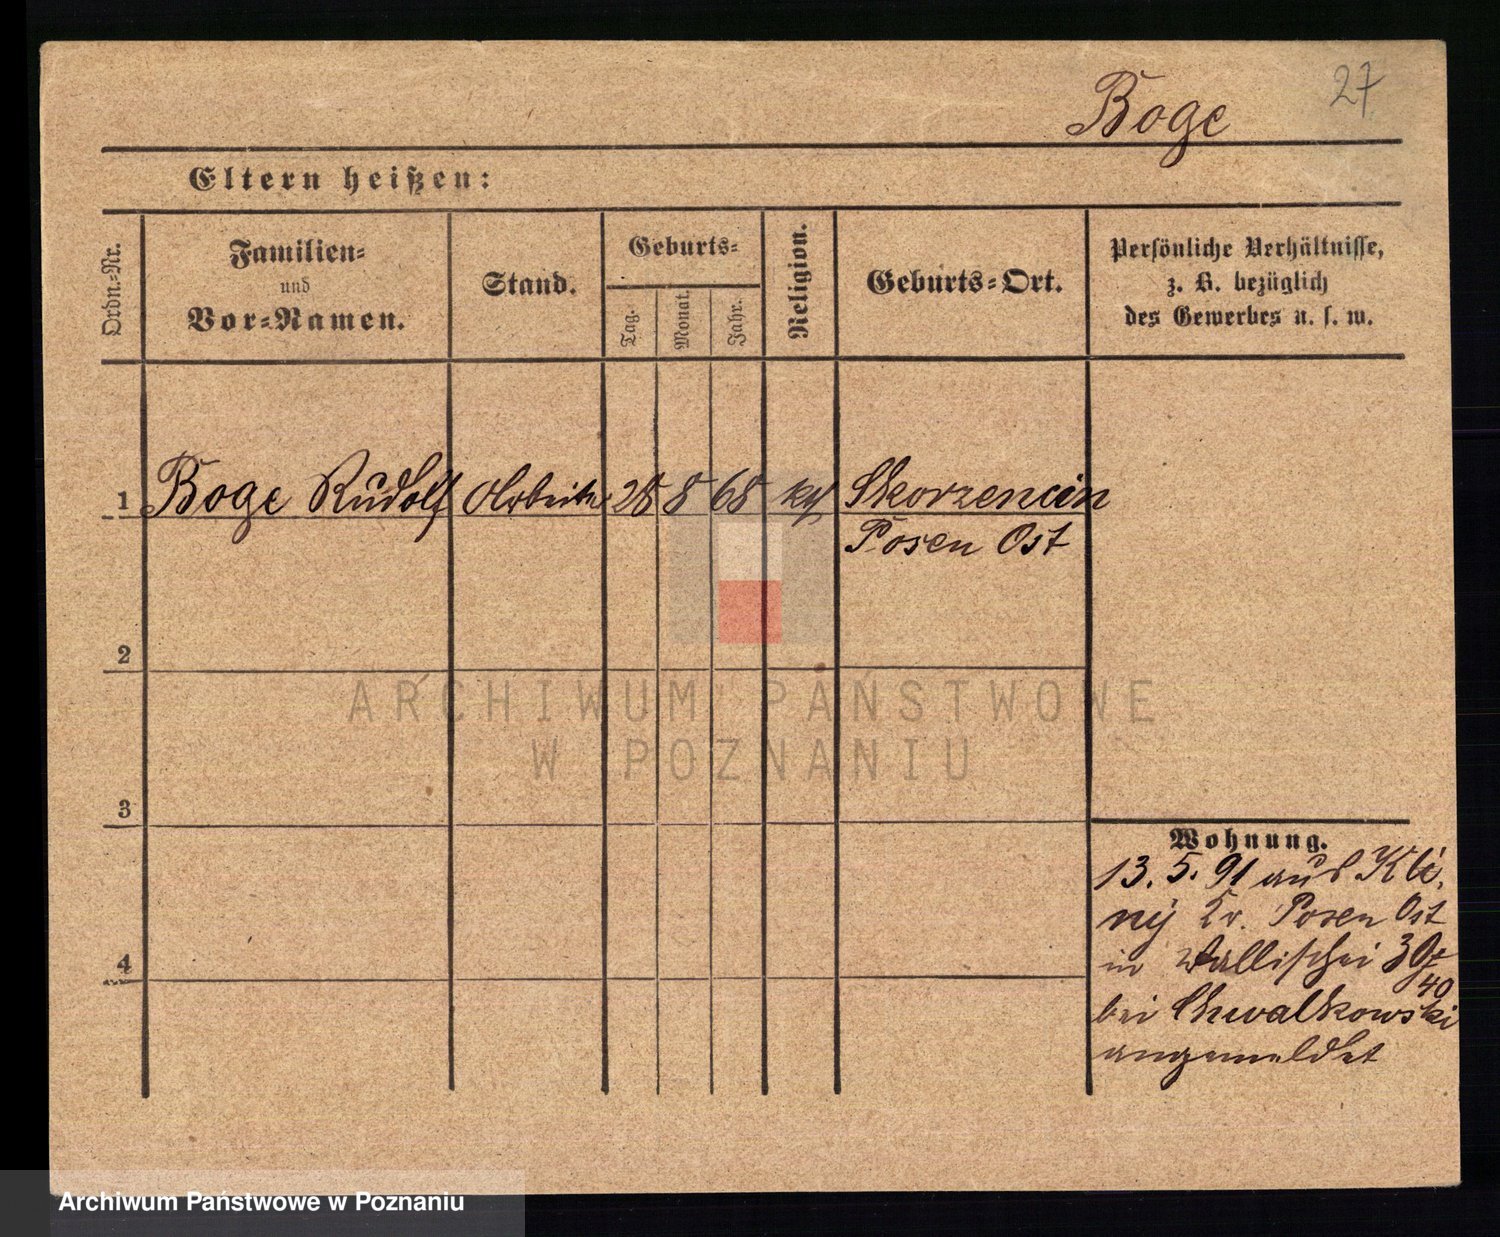 27
Boge
Eltern heißen:
Ordn.-Nr.
Familien-
und
Vor-Namen.
Stand.
Geburts-
Tag.
Monat.
Jahr.
Religion.
Geburts-Ort.
Persönliche Verhältnisse,
z. B. bezüglich
des Gewerbes u. s. w.
1 Boge Rudolf Arbeiter 28 8 68 Skorzencin
Posen Ost
2
ARCHIWUM PAŃSTWOWE
W POZNANIU
3
Wohnung.
13. 5. 91 aus
Kr. Posen Ost
in Wallischei 39/
40
bei Chwalkowski
angemeldet
4
Archiwum Państwowe w Poznaniu